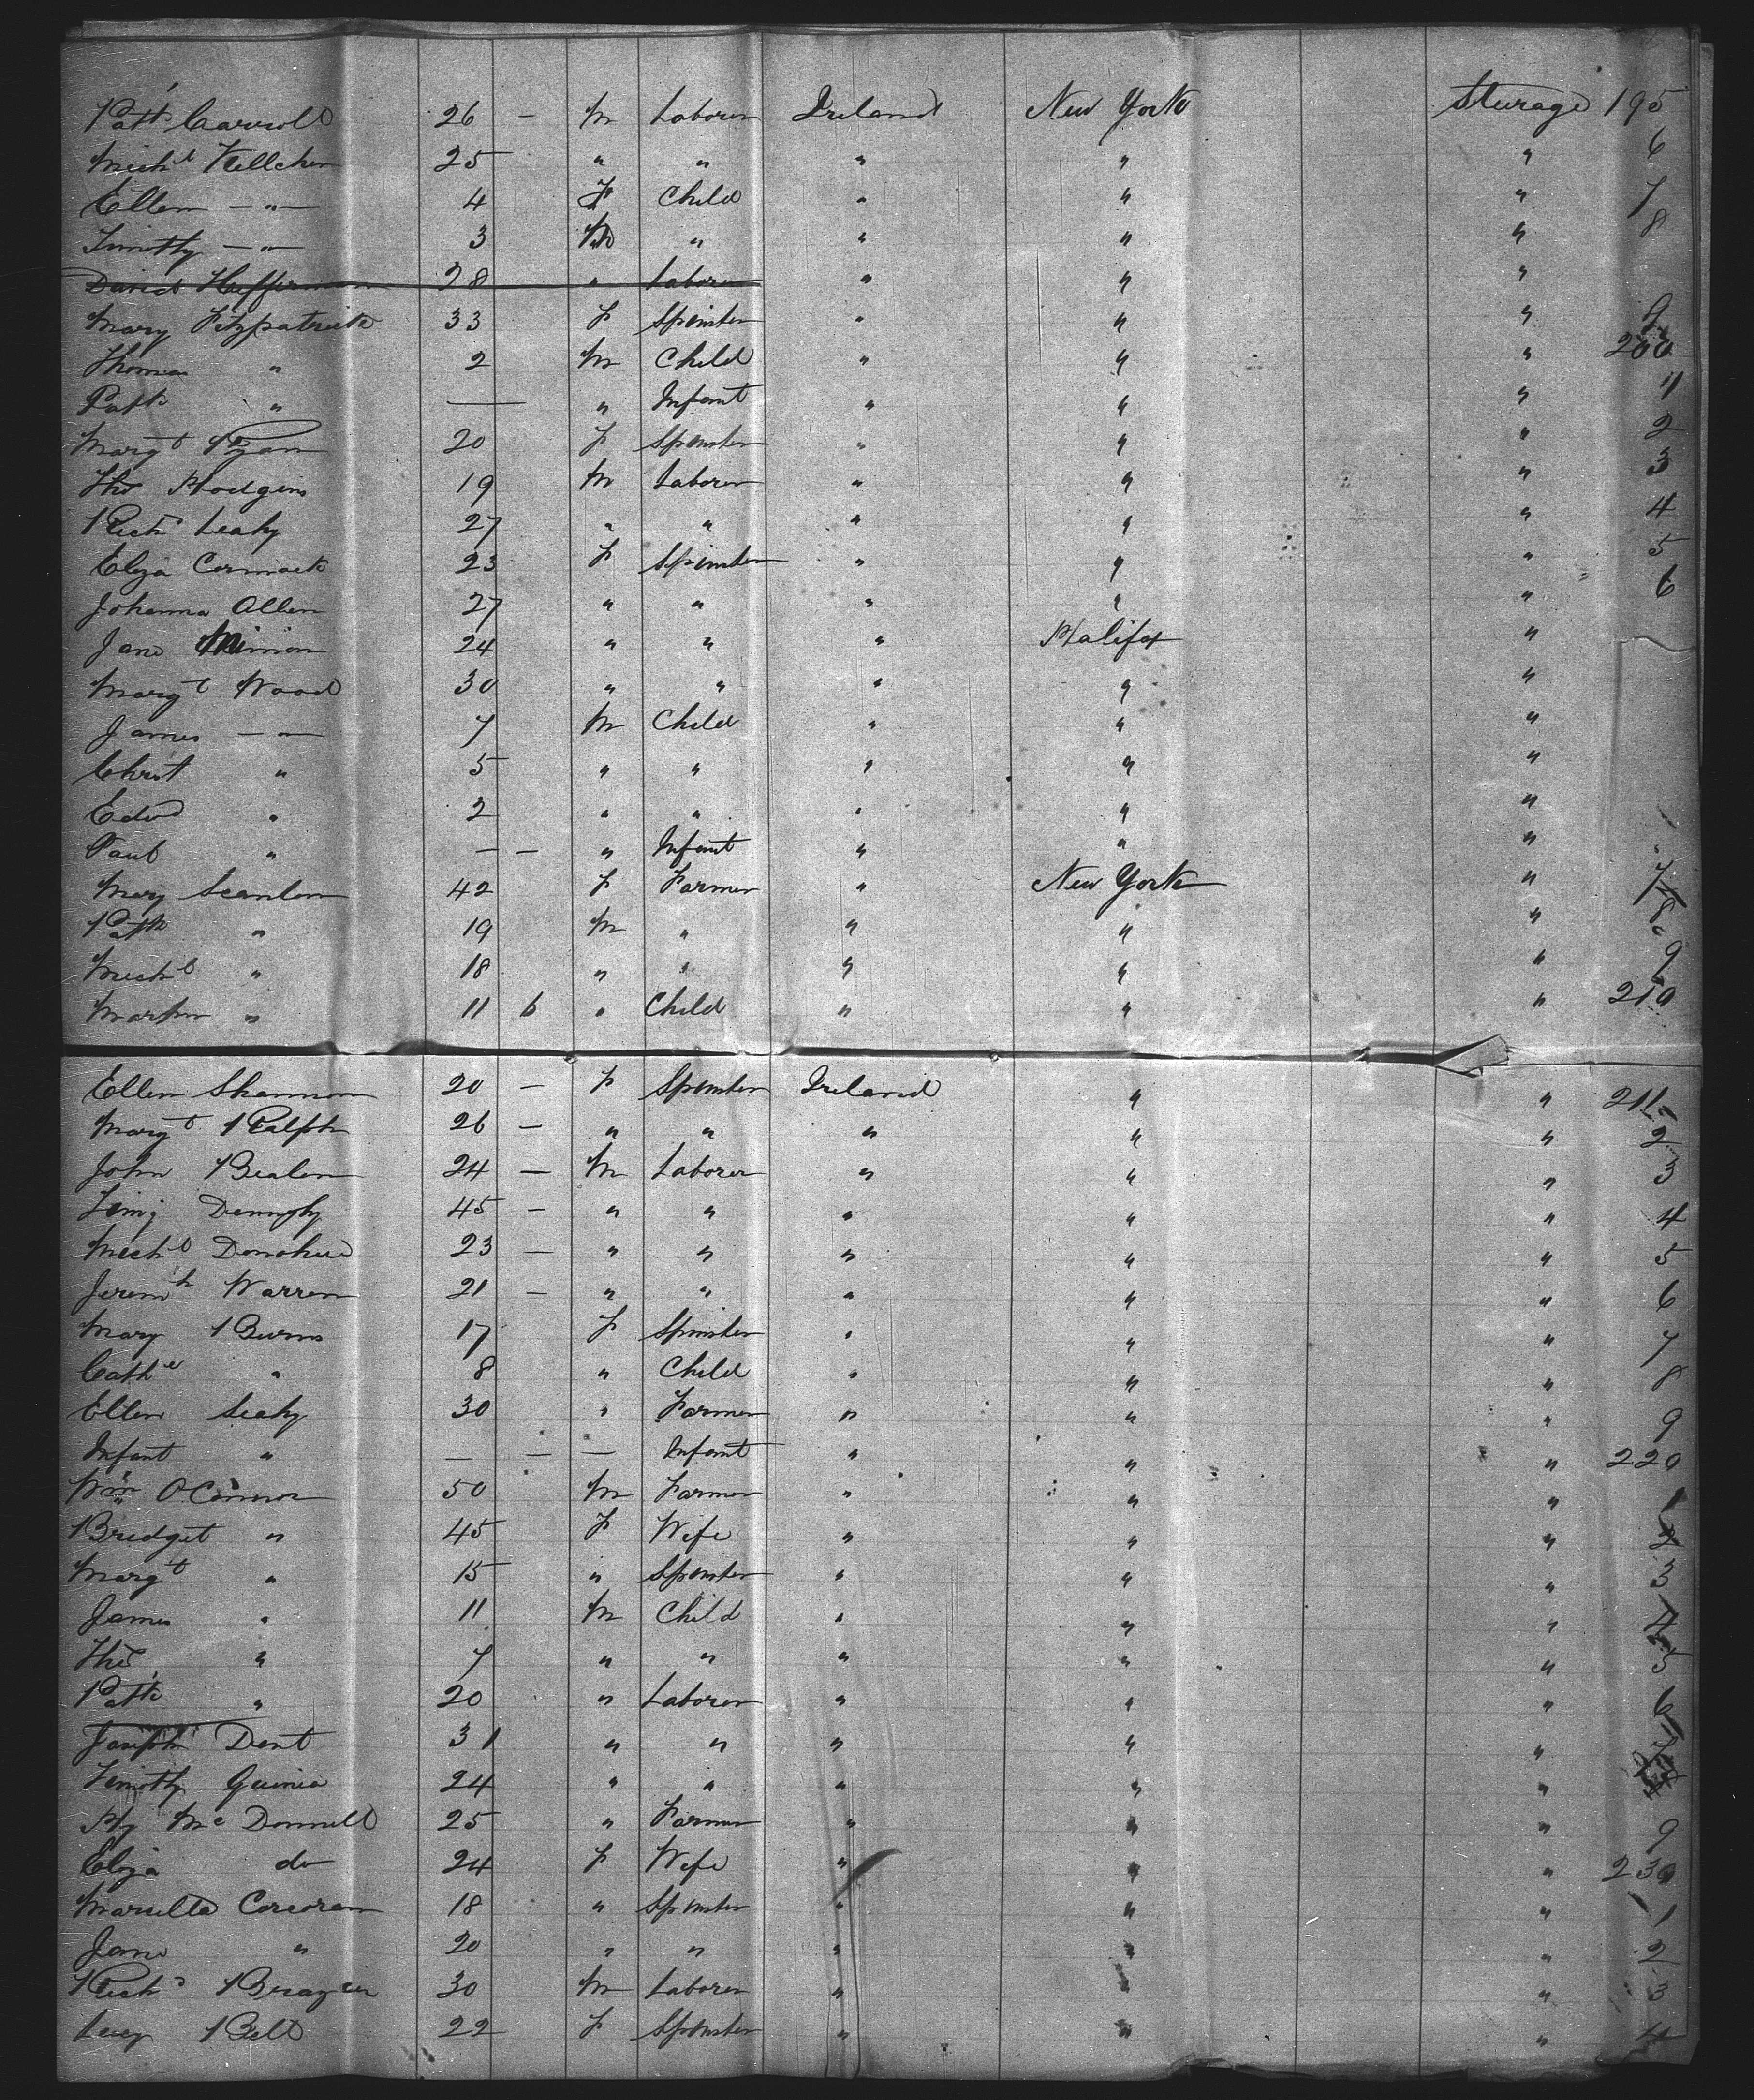 Patk Carroll 26 — M Laborer Ireland New York Steerage 195
Michl Kelleher 25 " " " " " 6
Ellen —"— 4 F Child " " " 7
Timothy —"— 3 M " " " " 8
David Heffernan 28 " Laborer " " "
Mary Fitzpatrick 33 F Spinster " " " 9
Thomas " 2 M Child " " " 200
Patk " — " Infant " " " 1
Margt Ryan 20 F Spinster " " " 2
Thos Hodgins 19 M Laborer " " " 3
Richd Leahy 27 " " " " " 4
Eliza Cormack 23 F Spinster " " " 5
Johanna Allen 27 " " " " " 6
Jane 24 " " " Halifax "
Margt Wood 30 " " " " "
James —"— 7 M Child " " "
Christ " 5 " " " " "
Edwd " 2 " " " " "
Paul " — — " Infant " " "
Mary Scanlon 42 F Farmer " New York " 7
Patk " 19 M " " " " 8
Michl " 18 " " " " " 9
Martin " 11 6 " Child " " " 210
Ellen Shannon 20 — F Spinster Ireland " " 211
Margt Ralph 26 — " " " " " 2
John Bealen 24 — M Laborer " " " 3
Timy Dennehy 45 — " " " " " 4
Michl Donohue 23 — " " " " " 5
Jeremh Warren 21 — " " " " " 6
Mary Burns 17 F Spinster " " " 7
Cathe " 8 " Child " " " 8
Ellen Leahy 30 " Farmer " " " 9
Infant " — — — Infant " " " 220
Wm O'Connor 50 M Farmer " " " 1
Bridget " 45 F Wife " " " 2
Margt " 15 " Spinster " " " 3
James " 11 M Child " " " 4
Thos " 7 " " " " " 5
Patk " 20 " Laborer " " " 6
Joseph Dent 31 " " " " " 7
Timothy Guinea 24 " " " " "
Hy McDonnell 25 " Farmer " " " 9
Eliza do 24 F Wife " " " 230
Marsella Corcoran 18 " Spinster " " " 1
Jane " 20 " " " " " 2
Richd Brazier 30 M Laborer " " " 3
Lucy Bell 22 F Spinster " " " 4